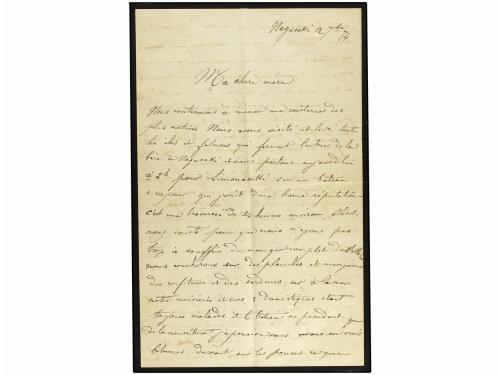 Nagasaki 2 7bre 74
Ma chère mère
Nous continuons à mener une existence des
plus actives. Nous avons visité et levé toutes
les îles et falaises qui forment l'entrée de la
baie de Nagasaki et nous partons aujourd'hui
à 2h pour Simonoseki sur un bateau
à vapeur qui jouit d'une bonne réputation
c'est une traversée de 24 heures environ
pour que nous n'ayons pas
trop souffrir du manque complet de
nous coucherons sur des planches et mangerons
des confitures et des sardines, car à la mer
notre cuisinier et nos 2 domestiques étant
toujours malades et le bateau ne pendant que
de la nourriture japonaise nous vivons en vrais
bohèmes, dévorant sur le pouce ce que